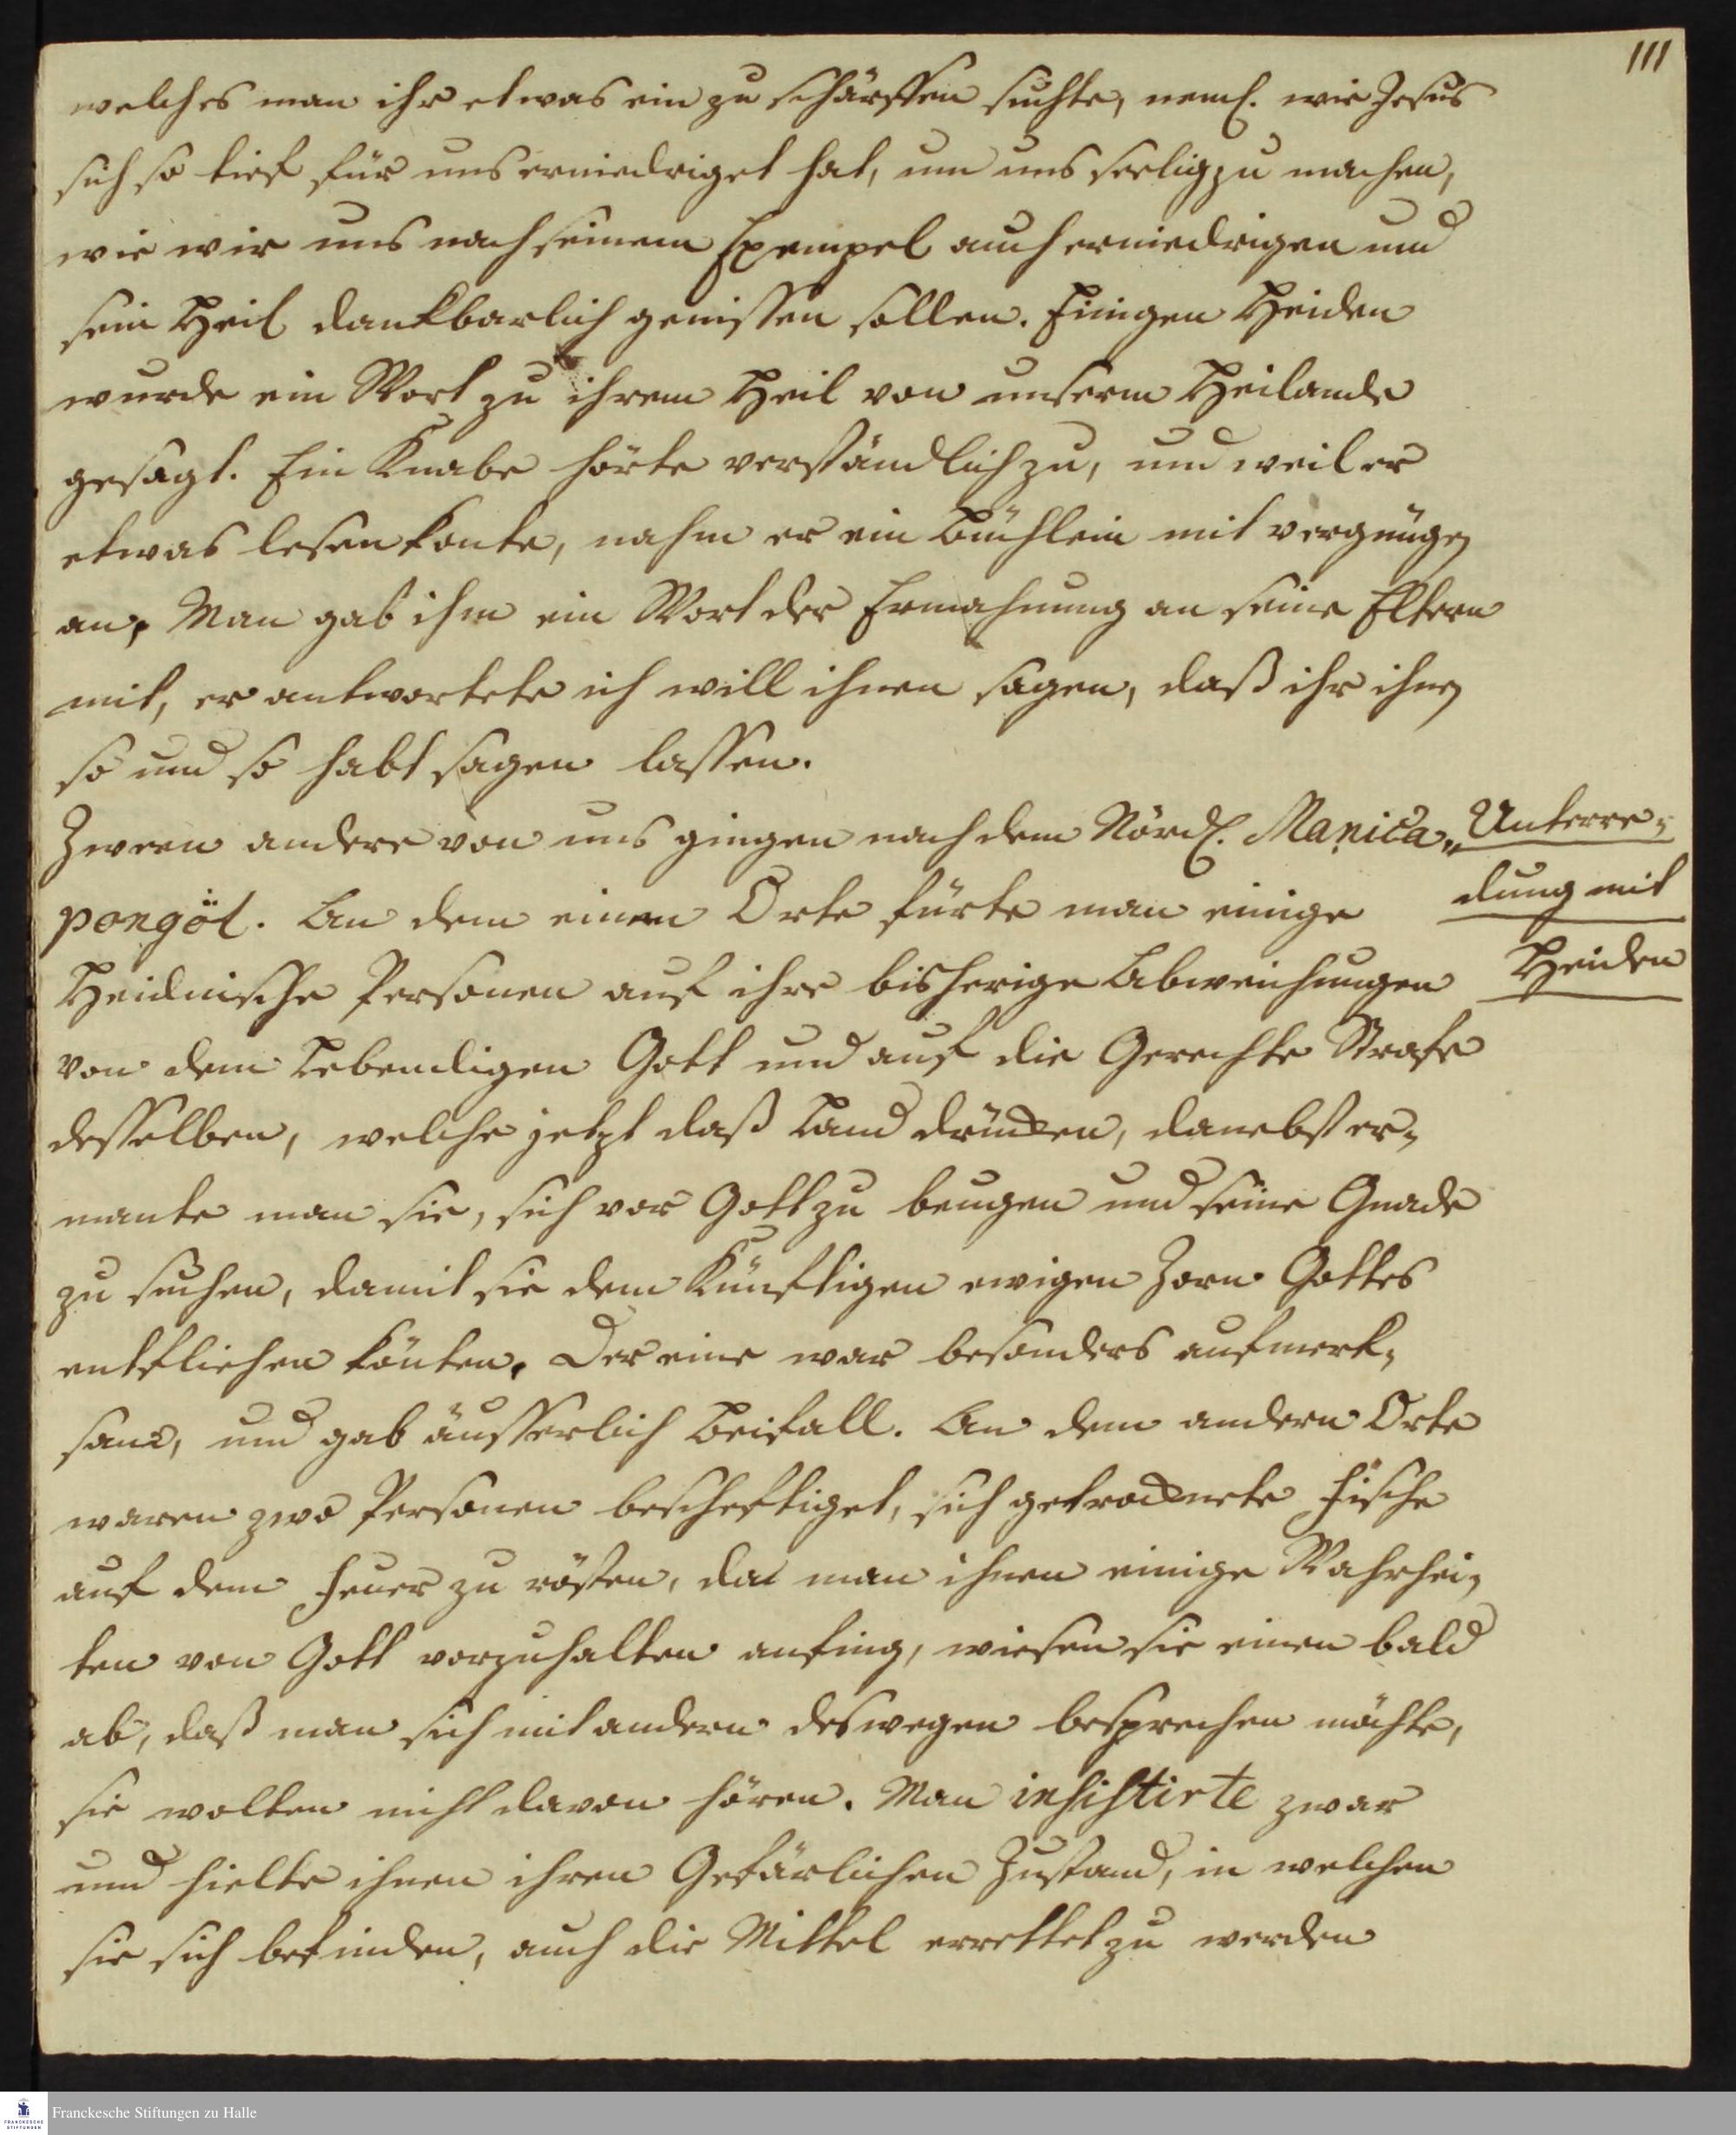 111
welches man ihr etwas ein zu schärffen suchte, neml. wie Jesus
sich so tief für uns erniedriget hat, um uns seelig zu machen,
wie wir uns nach seinem Exempel auch erniedrigen und
sein Heil dankbarlich genissen sollen. Einigen Heiden
wurde ein Wort zu ihrem Heil von unserm Heilande
gesagt. Ein Knabe hörte verständlich zu, und weil er
etwas lesen konte, nahm er ein Büchlein mit vergnügen
an, Man gab ihm ein Wort der Ermahnung an seine Eltern
mit, er antwortete ich will ihnen sagen, daß ihr ihnen
so und so habt sagen lassen.
Zween andere von uns gingen nach dem Nördl. Manica„
pongöl. An dem einen Orte fürte man einige
Heidnische Personen auf ihre bisherige Abweichungen
von dem Lebendigen Gott und auf die Gerechte Strafe
desselben, welche jetzt daß Land drücken, danebst er-
mante man sie, sich vor Gott zu beugen und seine Gnade
zu suchen, damit sie dem Künftigen ewigen Zorn Gottes
entfliehen könten. Der eine war besonders aufmerk-
sam, und gab äusserlich Beifall. An dem andern Orte
waren zwo Personen bescheftiget, sich getrocknete Fische
auf dem Feuer zu rösten, da man ihnen einige Wahrhei-
ten von Gott vorzuhalten anfing, wiesen sie einen bald
ab, daß man sich mit andern deswegen besprechen möchte,
sie wolten nicht davon hören. Man insistirte zwar
und hielte ihnen ihren Gefärlichen Zustand, in welchen
sie sich befinden, auch die Mittel errettet zu werden
Unterre-
dung mit
Heiden
FRANCKESCHE
STIFTUNGEN
Franckesche Stiftungen zu Halle